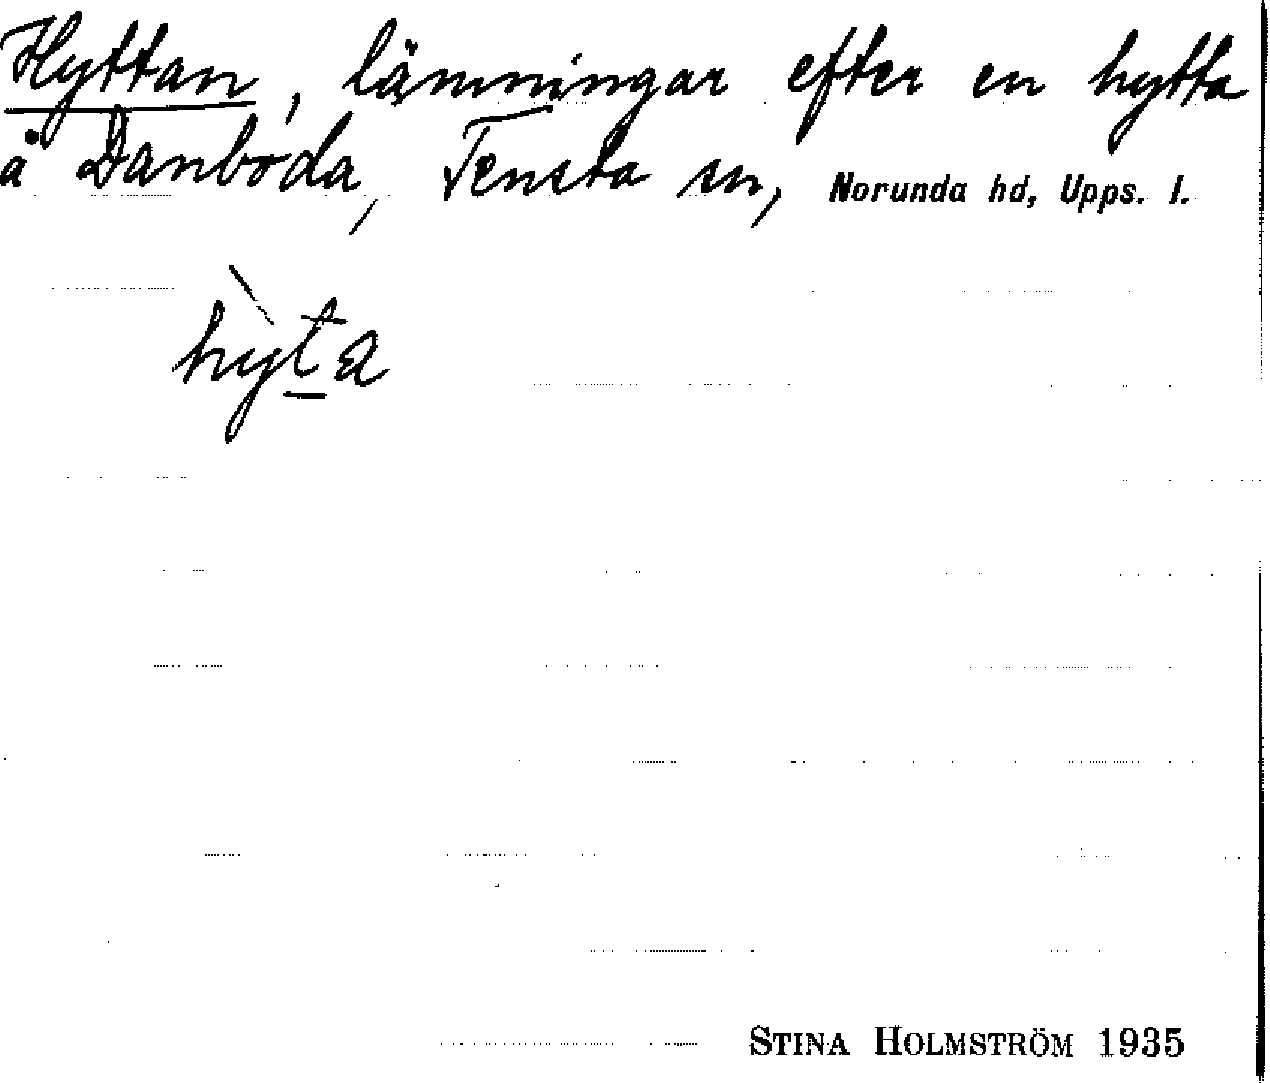 Hyttan, lämningar efter en hytta
å Danboda, Tensta sn, Norunda hd, Upps. l.
hyta
STINA HOLMSTRÖM 1935